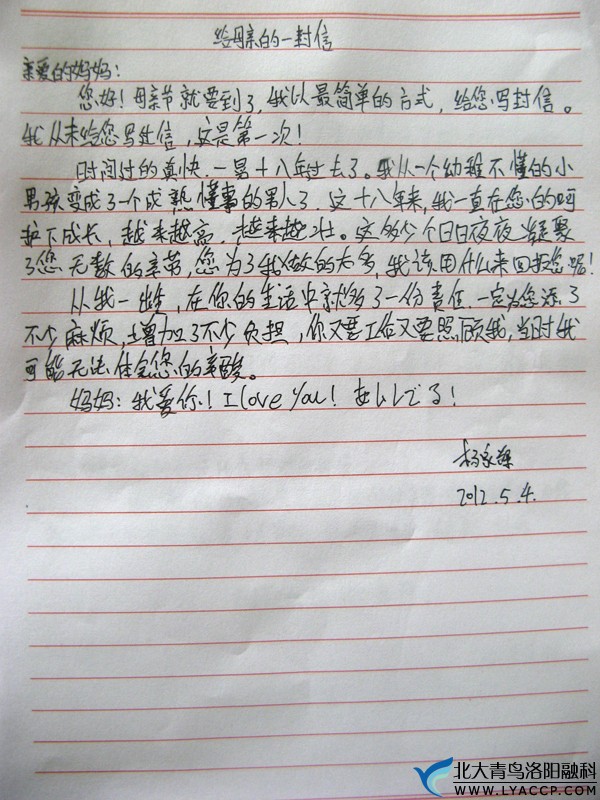 给母亲的一封信
亲爱的妈妈：
您好！母亲节就要到了，我以最简单的方式，给您写封信。
我从来给您写过信，这是第一次！
时间过的真快，一晃十八年过去了。我从一个幼稚不懂的小
男孩变成了一个成熟懂事的男人了，这十八年来，我一直在您的呵
护下成长，越来越高，越来越壮。这多少个日日夜夜凝聚
了您无数的辛劳，您为了我做的太多，我该用什么来回报您呢！
从我一出生，在你的生活中就多了一份责任，一定为您添了
不少麻烦，增加了不少负担，你又要工作又要照顾我，当时我
可能无法体会您的辛酸。
妈妈：我爱你！I love You！あいしてる！
2012.5.4.
北大青鸟洛阳融科
WWW.LYACCP.COM